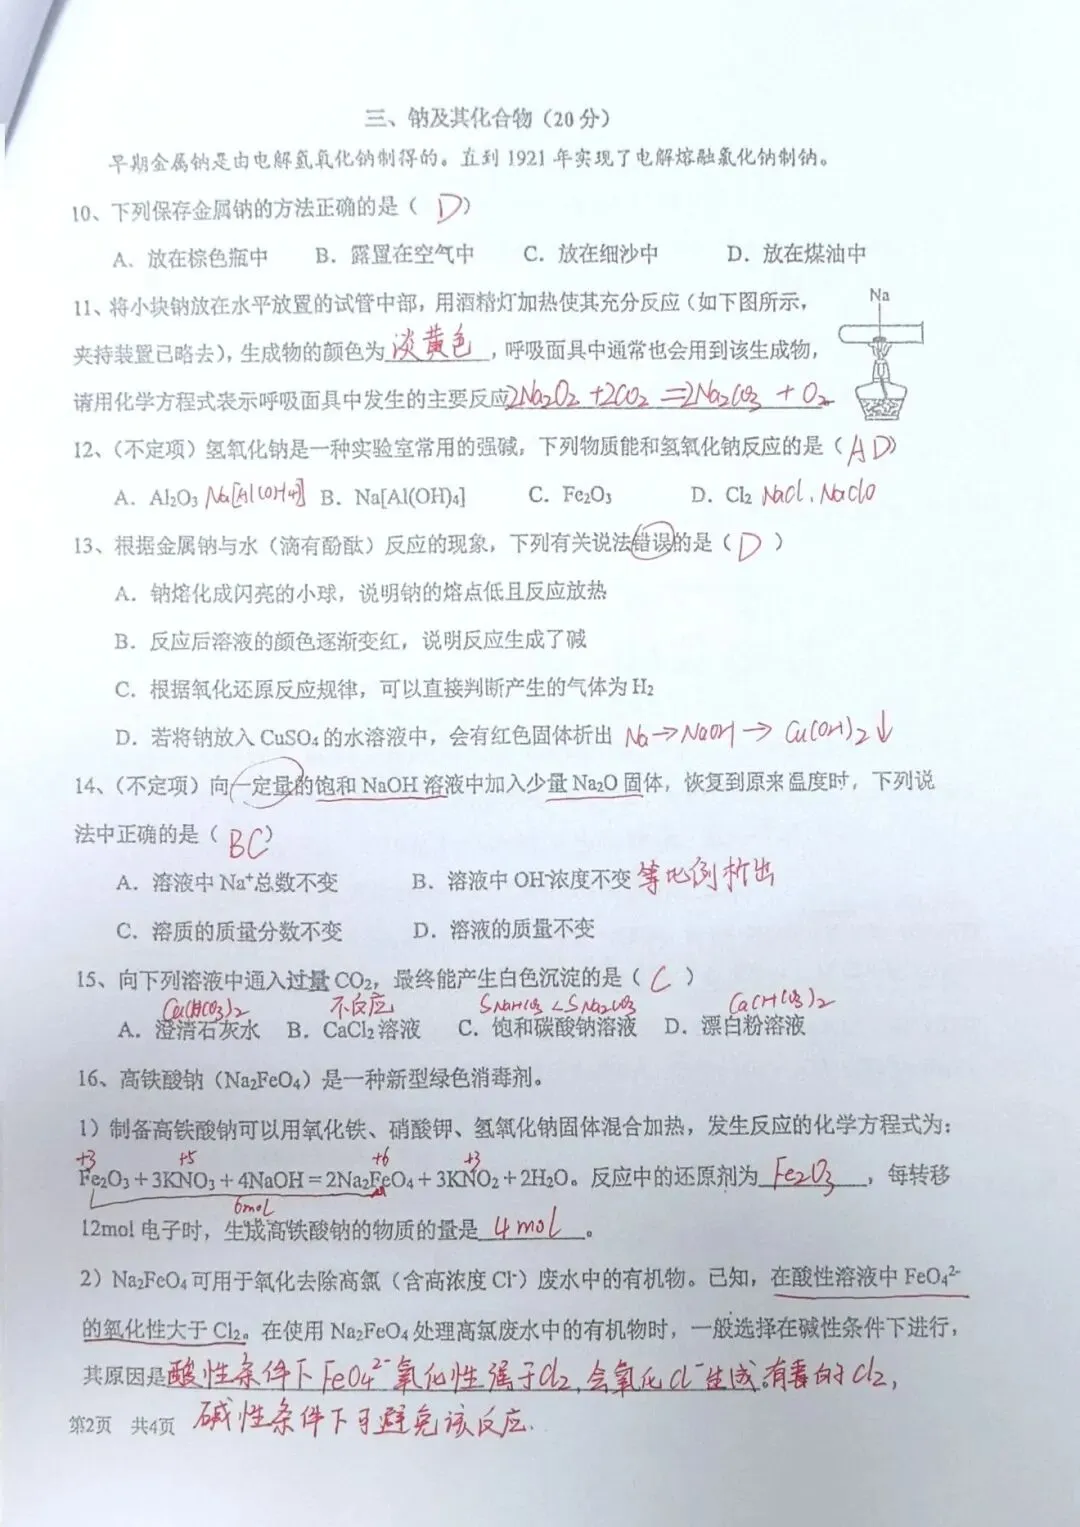 三、钠及其化合物（20分）
早期金属钠是由电解氢氧化钠制得的。直到 1921 年实现了电解熔融氯化钠制钠。
10、下列保存金属钠的方法正确的是（ D ）
A．放在棕色瓶中 B．露置在空气中 C．放在细沙中 D．放在煤油中
11、将小块钠放在水平放置的试管中部，用酒精灯加热使其充分反应（如下图所示，
Na
夹持装置已略去），生成物的颜色为 淡黄色 ，呼吸面具中通常也会用到该生成物，
请用化学方程式表示呼吸面具中发生的主要反应 2Na₂O₂ +2CO₂ =2Na₂CO₃ + O₂
12、（不定项）氢氧化钠是一种实验室常用的强碱，下列物质能和氢氧化钠反应的是（ AD ）
A．Al₂O₃ Na[Al(OH)4] B．Na[Al(OH)₄] C．Fe₂O₃ D．Cl₂ NaCl、NaClO
13、根据金属钠与水（滴有酚酞）反应的现象，下列有关说法错误的是（ D ）
A．钠熔化成闪亮的小球，说明钠的熔点低且反应放热
B．反应后溶液的颜色逐渐变红，说明反应生成了碱
C．根据氧化还原反应规律，可以直接判断产生的气体为 H₂
D．若将钠放入 CuSO₄ 的水溶液中，会有红色固体析出 Na→NaOH→ Cu(OH)₂↓
14、（不定项）向一定量的饱和 NaOH 溶液中加入少量 Na₂O 固体，恢复到原来温度时，下列说
法中正确的是（ BC ）
A．溶液中 Na⁺总数不变 B．溶液中 OH⁻浓度不变 等比例析出
C．溶质的质量分数不变 D．溶液的质量不变
15、向下列溶液中通入过量 CO₂，最终能产生白色沉淀的是（ C ）
Ca(HCO₃)₂ 不反应 SNaHCO₃ <SNa₂CO₃ Ca(HCO₃)₂
A．澄清石灰水 B．CaCl₂ 溶液 C．饱和碳酸钠溶液 D．漂白粉溶液
16、高铁酸钠（Na₂FeO₄）是一种新型绿色消毒剂。
1）制备高铁酸钠可以用氧化铁、硝酸钾、氢氧化钠固体混合加热，发生反应的化学方程式为：
+3 +5 +6 +3
Fe₂O₃ + 3KNO₃ + 4NaOH = 2Na₂FeO₄ + 3KNO₂ + 2H₂O。反应中的还原剂为 Fe₂O₃ ，每转移
6mol
12mol 电子时，生成高铁酸钠的物质的量是 4mol 。
2）Na₂FeO₄ 可用于氧化去除高氯（含高浓度 Cl⁻）废水中的有机物。已知，在酸性溶液中 FeO₄²⁻
的氧化性大于 Cl₂。在使用 Na₂FeO₄ 处理高氯废水中的有机物时，一般选择在碱性条件下进行，
其原因是 酸性条件下 FeO₄²⁻ 氧化性强于Cl₂, 会氧化Cl⁻生成有毒的Cl₂,
碱性条件下可避免该反应.
第2页 共4页